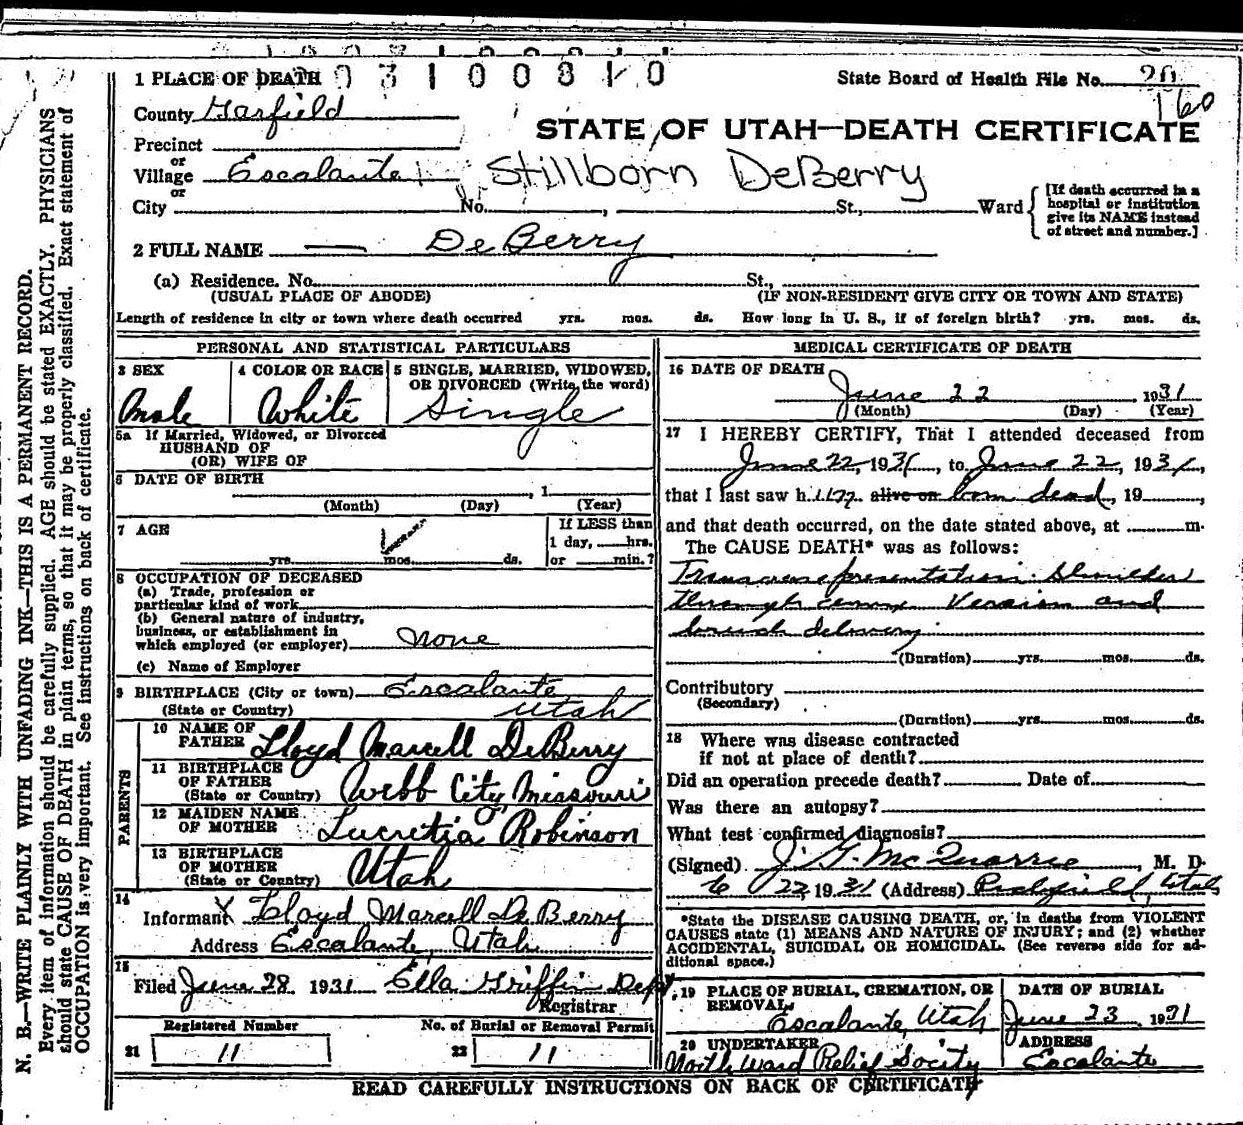 1 PLACE OF DEATH 0 3 1 0 0 8 1 0
State Board of Health File No. 20
160
County Garfield
STATE OF UTAH—DEATH CERTIFICATE
Precinct
or
Village Escalante Stillborn DeBerry
or
City No. , St., Ward
[If death occurred in a hospital or institution give its NAME instead of street and number.]
2 FULL NAME — DeBerry
(a) Residence. No. St.,
(USUAL PLACE OF ABODE) (IF NON-RESIDENT GIVE CITY OR TOWN AND STATE)
Length of residence in city or town where death occurred yrs. mos. ds. How long in U. S., if of foreign birth? yrs. mos. ds.
PERSONAL AND STATISTICAL PARTICULARS
3 SEX 4 COLOR OR RACE 5 SINGLE, MARRIED, WIDOWED,
OR DIVORCED (Write the word)
Male White Single
5a If Married, Widowed, or Divorced
HUSBAND OF
(OR) WIFE OF
6 DATE OF BIRTH
, 1
(Month) (Day) (Year)
7 AGE If LESS than
1 day, hrs.
yrs. mos. ds. or min.?
8 OCCUPATION OF DECEASED
(a) Trade, profession or
particular kind of work
(b) General nature of industry,
business, or establishment in
which employed (or employer) None
(c) Name of Employer
9 BIRTHPLACE (City or town) Escalante
(State or Country) Utah
PARENTS
10 NAME OF
FATHER Lloyd Marcell DeBerry
11 BIRTHPLACE
OF FATHER
(State or Country) Webb City, Missouri
12 MAIDEN NAME
OF MOTHER Lucretia Robinson
13 BIRTHPLACE
OF MOTHER
(State or Country) Utah
14
Informant X Lloyd Marcell DeBerry
Address Escalante, Utah
15
Filed June 28 1931 Ella Griffin Dept
Registrar
Registered Number No. of Burial or Removal Permit
21 11 22 11
MEDICAL CERTIFICATE OF DEATH
16 DATE OF DEATH
June 22 , 1931
(Month) (Day) (Year)
17 I HEREBY CERTIFY, That I attended deceased from
June 22, 1931, to June 22, 1931,
that I last saw h im alive on born dead, 19 ,
and that death occurred, on the date stated above, at m.
The CAUSE DEATH* was as follows:
Transverse presentation. Shoulder
through cervix Version and
breech delivery.
(Duration) yrs. mos. ds.
Contributory
(Secondary)
(Duration) yrs. mos. ds.
18 Where was disease contracted
if not at place of death?
Did an operation precede death? Date of
Was there an autopsy?
What test confirmed diagnosis?
(Signed) J. G. McQuarrie , M. D.
6 22, 1931 (Address) Utah
*State the DISEASE CAUSING DEATH, or, in deaths from VIOLENT
CAUSES state (1) MEANS AND NATURE OF INJURY; and (2) whether
ACCIDENTAL, SUICIDAL OR HOMICIDAL. (See reverse side for ad-
ditional space.)
19 PLACE OF BURIAL, CREMATION, OR
REMOVAL
Escalante, Utah
DATE OF BURIAL
June 23, 1931
20 UNDERTAKER
North Ward Relief Socity
ADDRESS
Escalante
READ CAREFULLY INSTRUCTIONS ON BACK OF CERTIFICATE
N. B.—WRITE PLAINLY WITH UNFADING INK—THIS IS A PERMANENT RECORD.
Every item of information should be carefully supplied. AGE should be stated EXACTLY. PHYSICIANS
should state CAUSE OF DEATH in plain terms, so that it may be properly classified. Exact statement of
OCCUPATION is very important. See instructions on back of certificate.